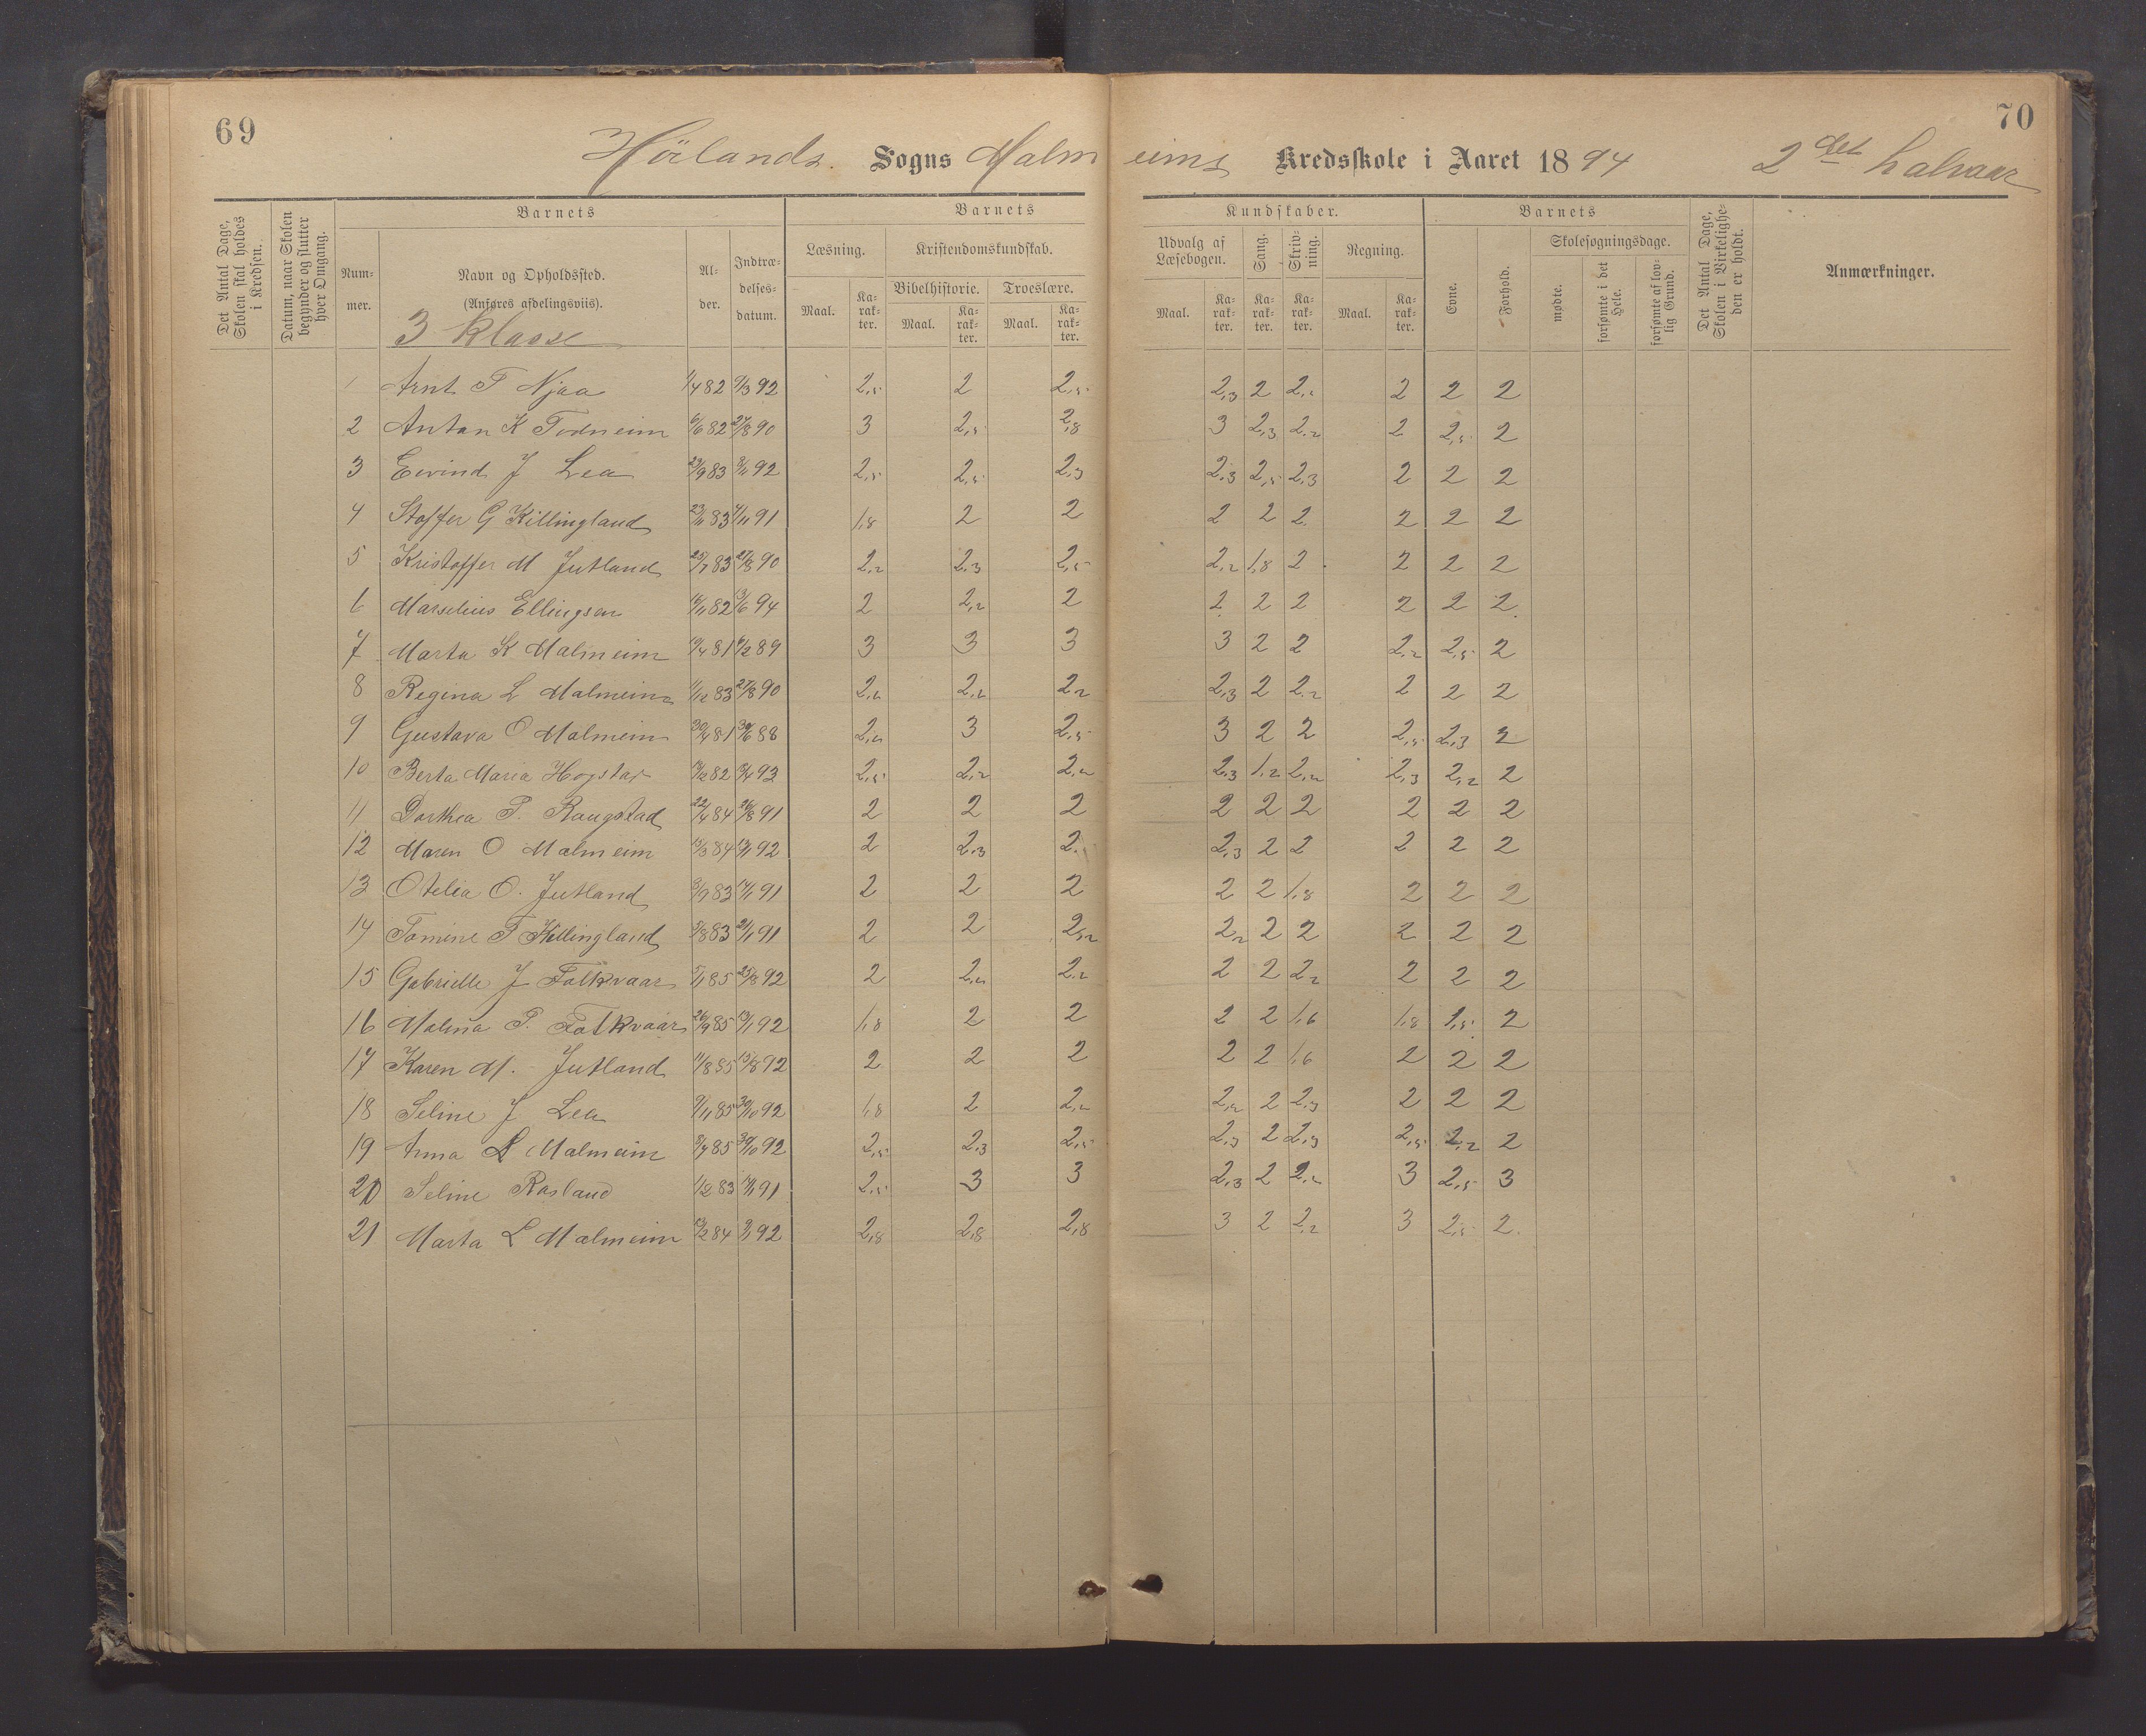 69
70
Höilands Sogns Malmeims Kredsskole i Aaret 1894 2det halvaar
Det Antal Dage, Skolen skal holdes i Kredsen.
Datum, naar Skolen begynder og slutter hver Omgang.
Barnets
Barnets
Kundskaber.
Barnets
Det Antal Dage, Skolen i Virkeligheden er holdt.
Anmærkninger.
Nummer.
Navn og Opholdssted.
(Anføres afdelingsviis).
Alder.
Indtrædelsesdatum.
Læsning.
Kristendomskundskab.
Bibelhistorie.
Troeslære.
Udvalg af Læsebogen.
Sang.
Skrivning.
Regning.
Evne.
Forhold.
Skolesøgningsdage.
Maal. Karakter. Maal. Karakter. Maal. Karakter. Maal. Karakter. Karakter. Karakter. Maal. Karakter.
mødte.
forsømte i det Hele.
forsømte af lovlig Grund.
3 Klasse
1 Arnt T Njaa 1/4 82 9/3 92 2,5 2 2,5 2,3 2 2,2 2 2 2
2 Anton K Todneim 6/6 82 27/8 90 3 2,5 2,8 3 2,3 2,2 2 2,5 2
3 Eivind J Lea 23/9 83 8/11 92 2,5 2,5 2,3 2,3 2,5 2,3 2 2 2
4 Stoffer G Killingland 23/11 83 4/11 91 1,8 2 2 2 2 2 2 2 2
5 Kristoffer M Jutland 25/7 83 27/8 90 2,2 2,3 2,5 2,2 1,8 2 2 2 2
6 Marselius Ellingsen 82 13/6 94 2 2,2 2 2 2 2 2 2 2
7 Marta K Malmeim 19/4 81 6/2 89 3 3 3 3 2 2 2,2 2,5 2
8 Regina L Malmeim 1/12 83 27/8 90 2,2 2,2 2,2 2,3 2 2,2 2 2 2
9 Gustava O Malmeim 30/4 81 30/6 88 2,2 3 2,5 3 2 2 2,5 2,3 2
10 Berta Maria Hogstad 82 93 2,5 2,2 2,2 2,3 1,2 2,2 2,3 2,2 2
11 Dorthea P. Raugstad 22/4 84 26/8 91 2 2 2 2 2 2 2 2 2
12 Maren O Malmeim 15/3 84 13/1 92 2 2,3 2 2,3 2 2 2 2 2
13 Otelia O. Jutland 3/9 83 14/1 91 2 2 2 2 2 1,8 2 2 2
14 Tomine T Killingland 5/8 83 21/1 91 2 2 2,2 2,2 2 2 2 2 2
15 Gabrielle J Folkvaar 5/1 85 25/8 92 2 2,2 2,2 2 2 2,2 2 2 2
16 Malina P. Folkvaar 26/9 85 13/1 92 1,8 2 2 2 2 1,6 1,8 1,5 2
17 Karen M. Jutland 11/8 85 15/8 92 2 2 2 2 2 1,6 2 2 2
18 Seline J Lea 9/11 85 30/10 92 1,8 2 2,2 2,2 2 2,3 2 2 2
19 Anna L Malmeim 3/7 85 30/10 92 2,5 2,3 2,5 2,3 2 2,3 2,5 2,2 2
20 Seline Rosland 1/12 83 14/1 91 2,5 3 3 2,3 2 2,2 3 2,5 3
21 Marta L Malmeim 84 92 2,8 2,8 2,8 3 2 2,2 3 2,5 2